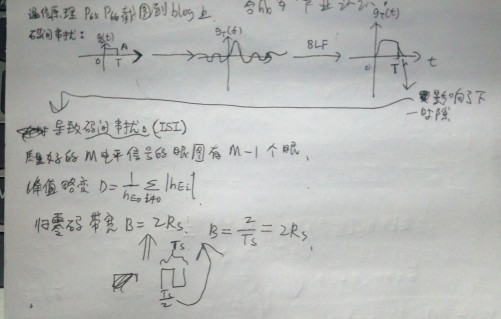 通信原理 P65 P66 截图到blog上
码间串扰: g(t) A 0 T
g_T(f)
BLF
g_T(t) 0 T t
影响了下
一时隙
导致码间串扰。(ISI)
良好的 M 电平信号的眼图有 M-1 个眼.
峰值畸变 D = 1/h_{E0} Σ_{i≠0} |h_{Ei}|
归零码带宽 B = 2R_s. B = 2/T_s = 2R_s.
T_s
T_s/2